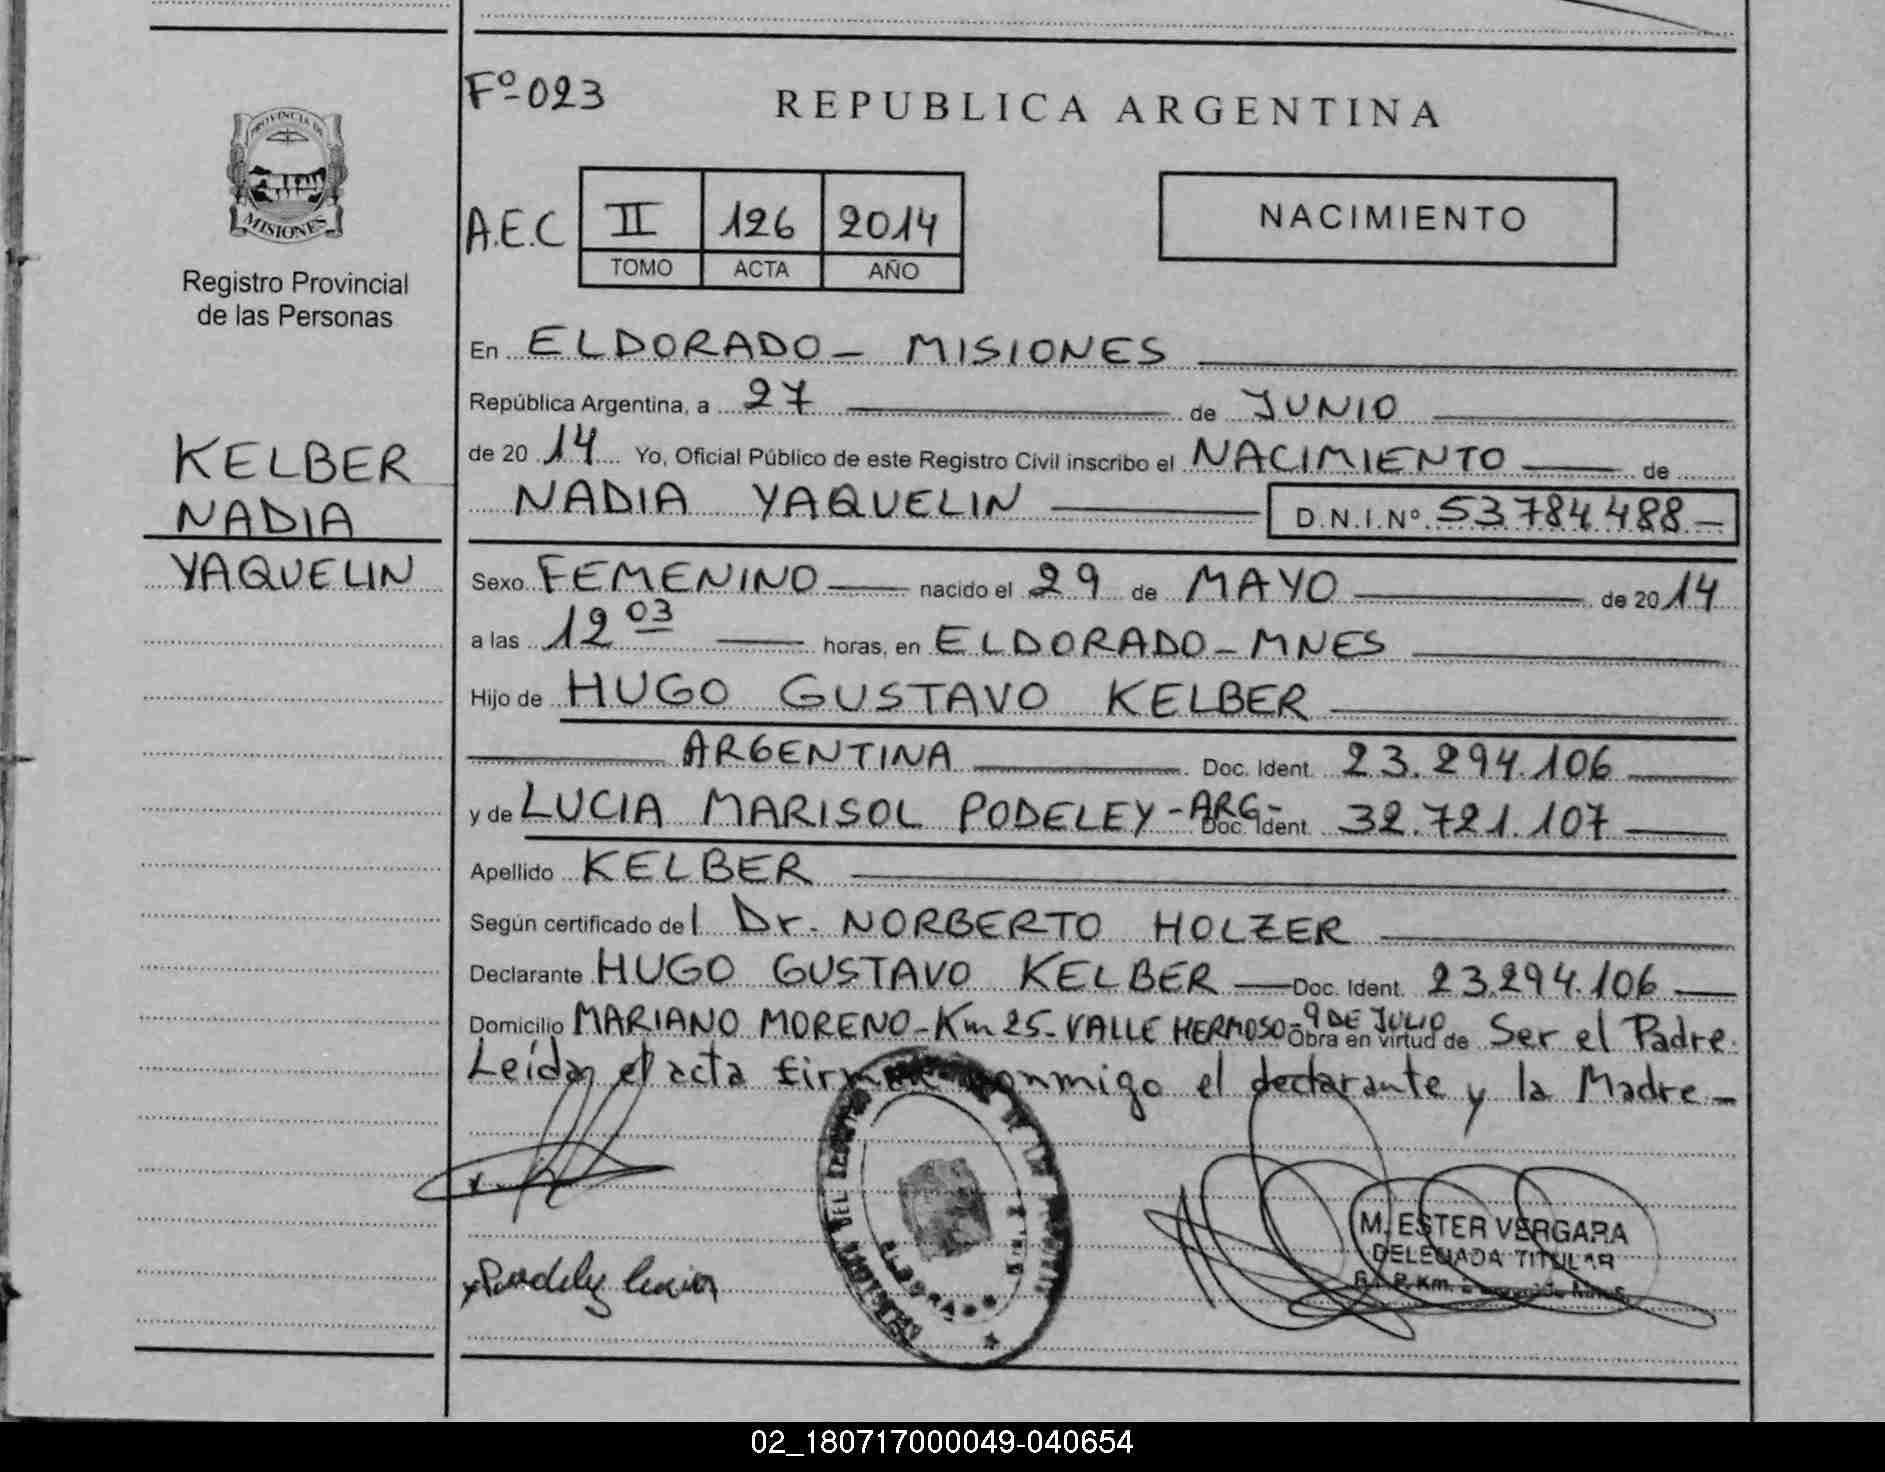 Fº-023
REPUBLICA ARGENTINA
PROVINCIA DE
MISIONES
Registro Provincial
de las Personas
A.E.C II 126 2014
TOMO ACTA AÑO
NACIMIENTO
KELBER
NADIA
YAQUELIN
En ELDORADO - MISIONES
República Argentina, a 27 de JUNIO
de 2014 Yo, Oficial Público de este Registro Civil inscribo el NACIMIENTO de
NADIA YAQUELIN D.N.I.Nº 53.784.488-
Sexo FEMENINO nacido el 29 de MAYO de 2014
a las 12 03 horas, en ELDORADO - MNES
Hijo de HUGO GUSTAVO KELBER
ARGENTINA Doc. Ident. 23.294.106
y de LUCIA MARISOL PODELEY - ARG- Doc. Ident. 32.721.107
Apellido KELBER
Según certificado del Dr. NORBERTO HOLZER
Declarante HUGO GUSTAVO KELBER Doc. Ident. 23.294.106
Domicilio MARIANO MORENO - Km 25 - VALLE HERMOSO - 9 DE JULIO Obra en virtud de Ser el Padre.
Leída el acta firman conmigo el declarante y la Madre -
DEL
ELDORADO
M. ESTER VERGARA
DELEGADA TITULAR
02_180717000049-040654